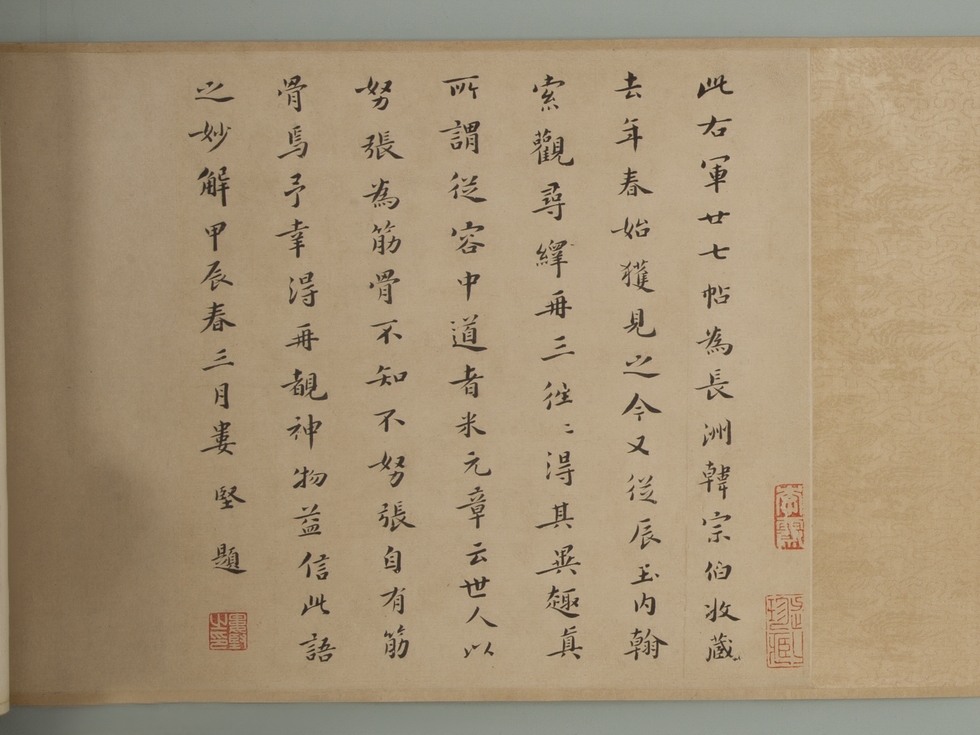 此右軍廿七帖為長洲韓宗伯收藏
去年春始獲見之今又從辰玉内翰
索觀尋繹再三往〻得其異趣真
所謂從容中道者米元章云世人以
努張為筋骨不知不努張自有筋
骨焉予幸得再覩神物益信此語
之妙解甲辰春三月婁堅題
婁堅之印